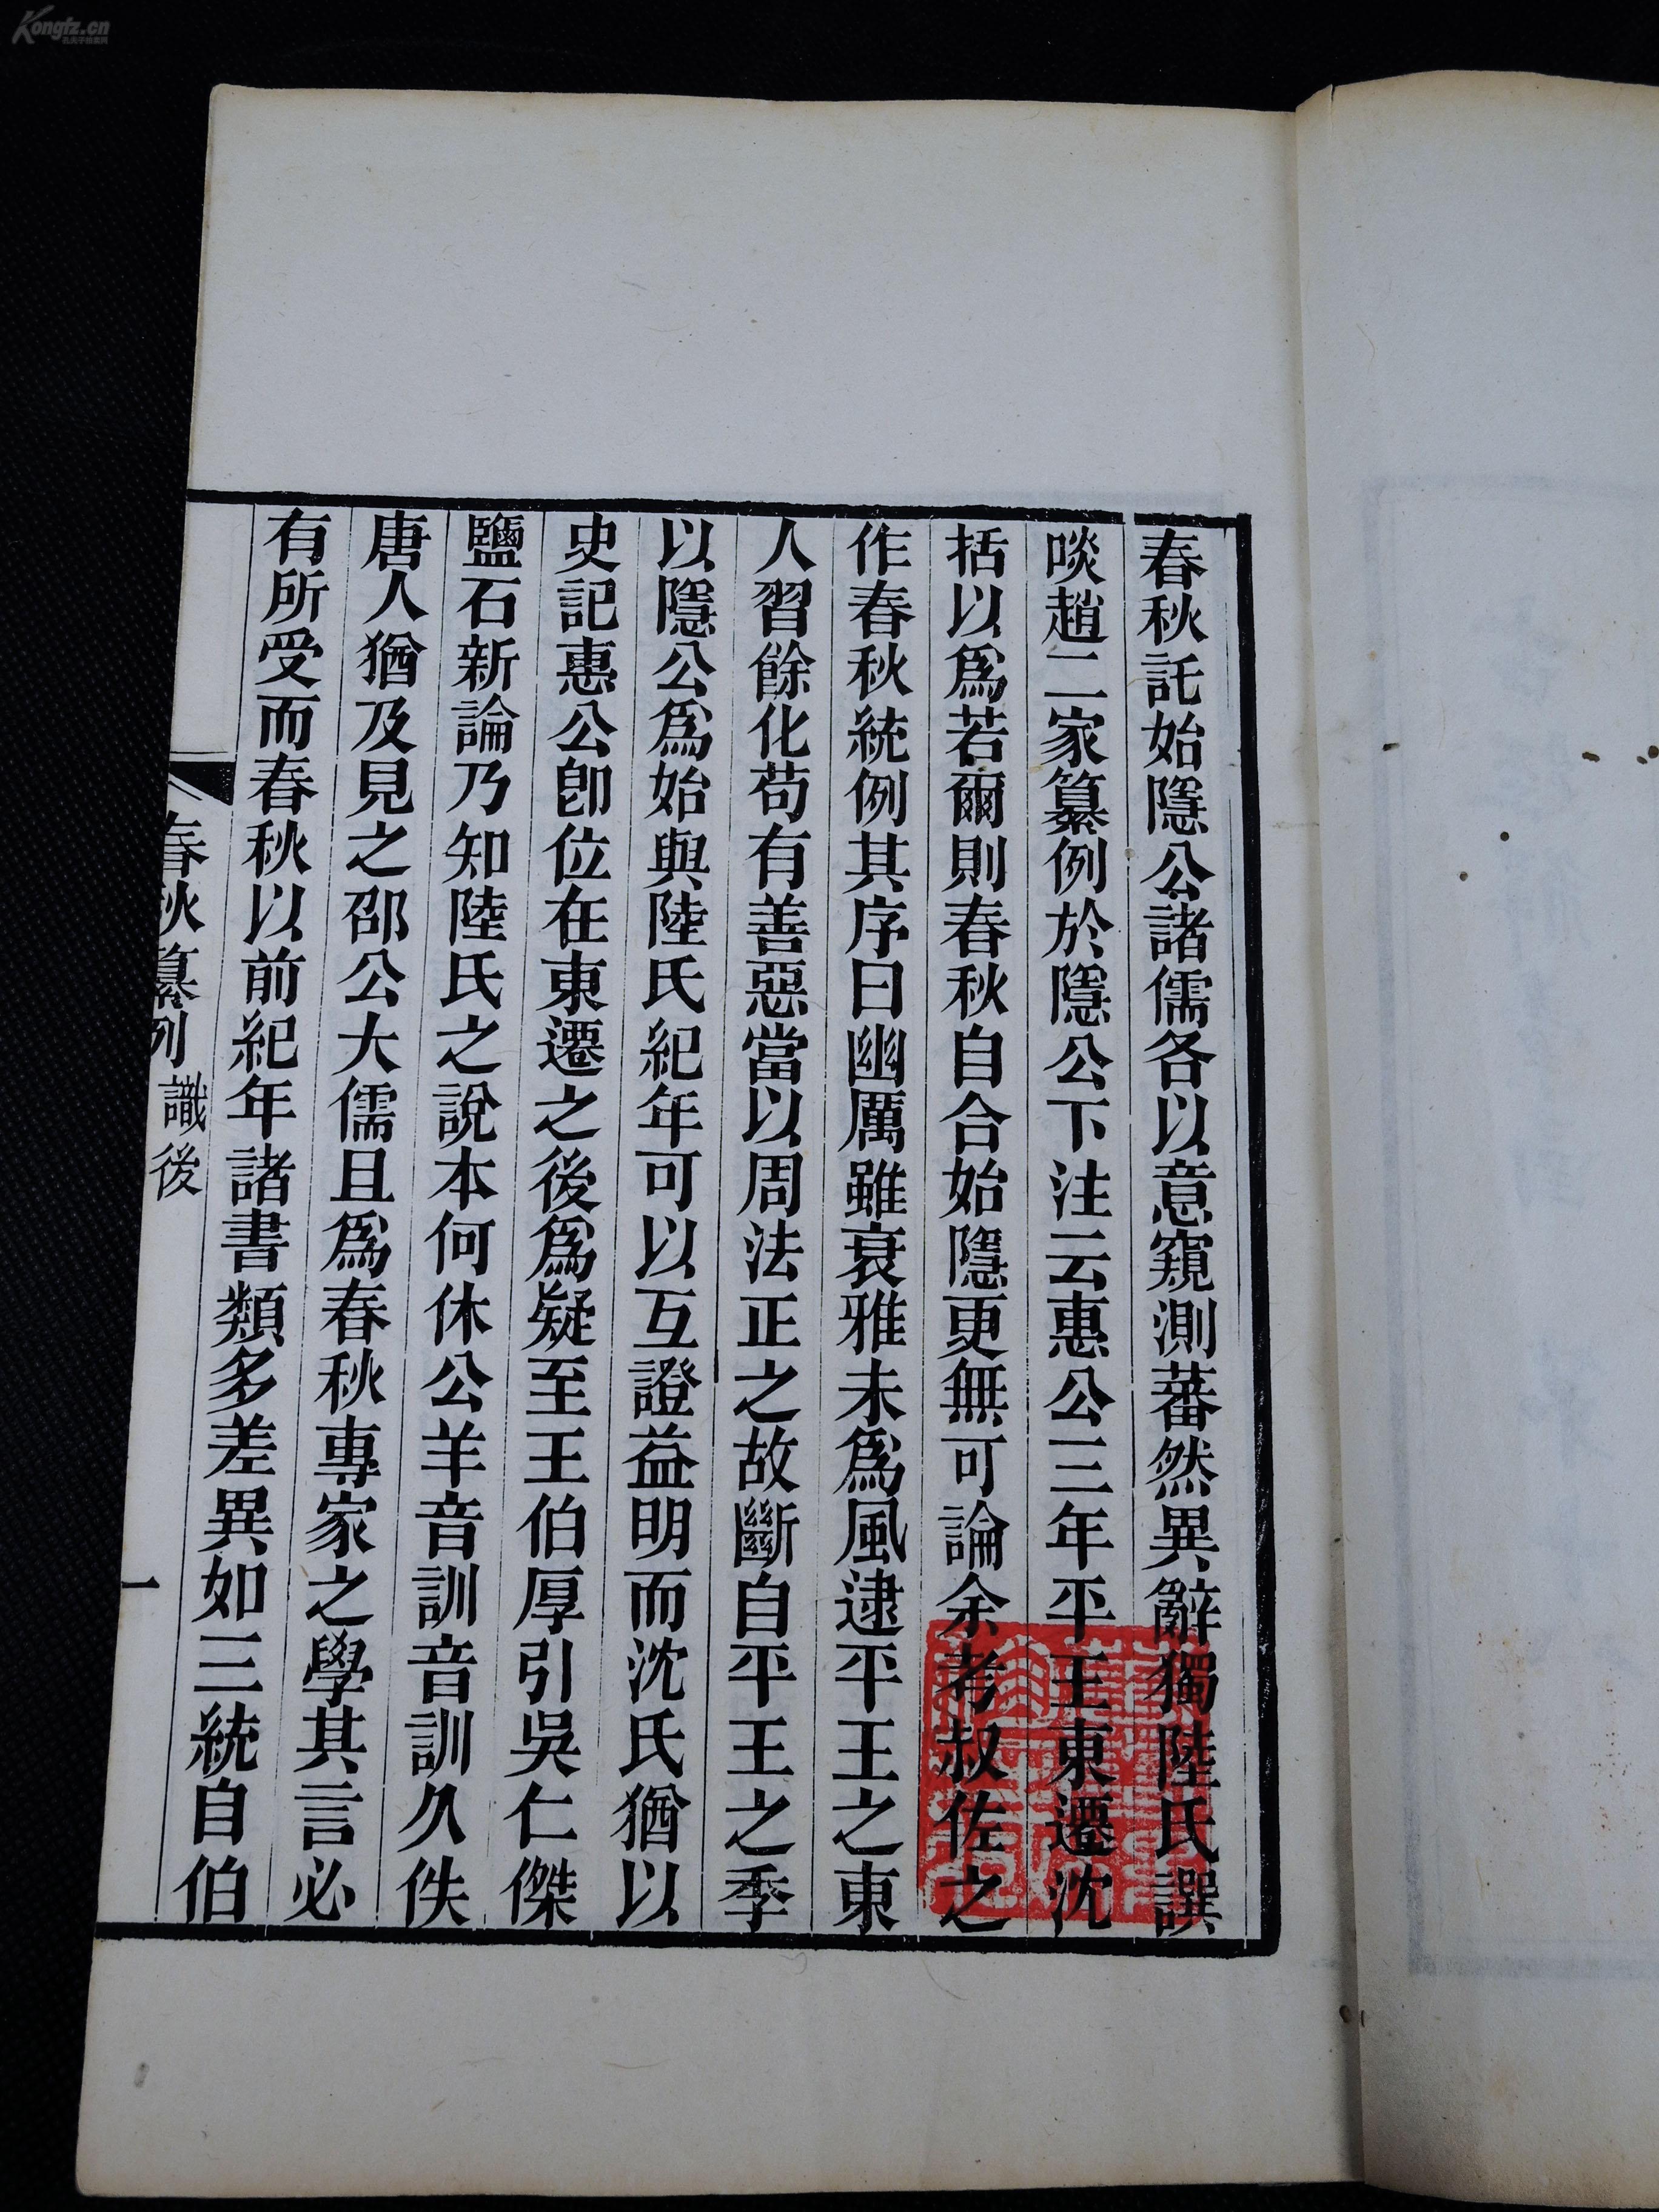 春秋託始隱公諸儒各以意窺測蕃然異辭獨陸氏譔
啖趙二家纂例於隱公下注云惠公三年平王東遷沈
括以爲若爾則春秋自合始隱更無可論余考叔佐之
作春秋統例其序曰幽厲雖衰雅未爲風逮平王之東
人習餘化苟有善惡當以周法正之故斷自平王之季
以隱公爲始與陸氏紀年可以互證益明而沈氏猶以
史記惠公卽位在東遷之後爲疑至王伯厚引吳仁傑
鹽石新論乃知陸氏之說本何休公羊音訓音訓久佚
唐人猶及見之邵公大儒且爲春秋專家之學其言必
有所受而春秋以前紀年諸書類多差異如三統自伯
春秋纂例 識後 一
Kongfz.cn
孔夫子旧书网